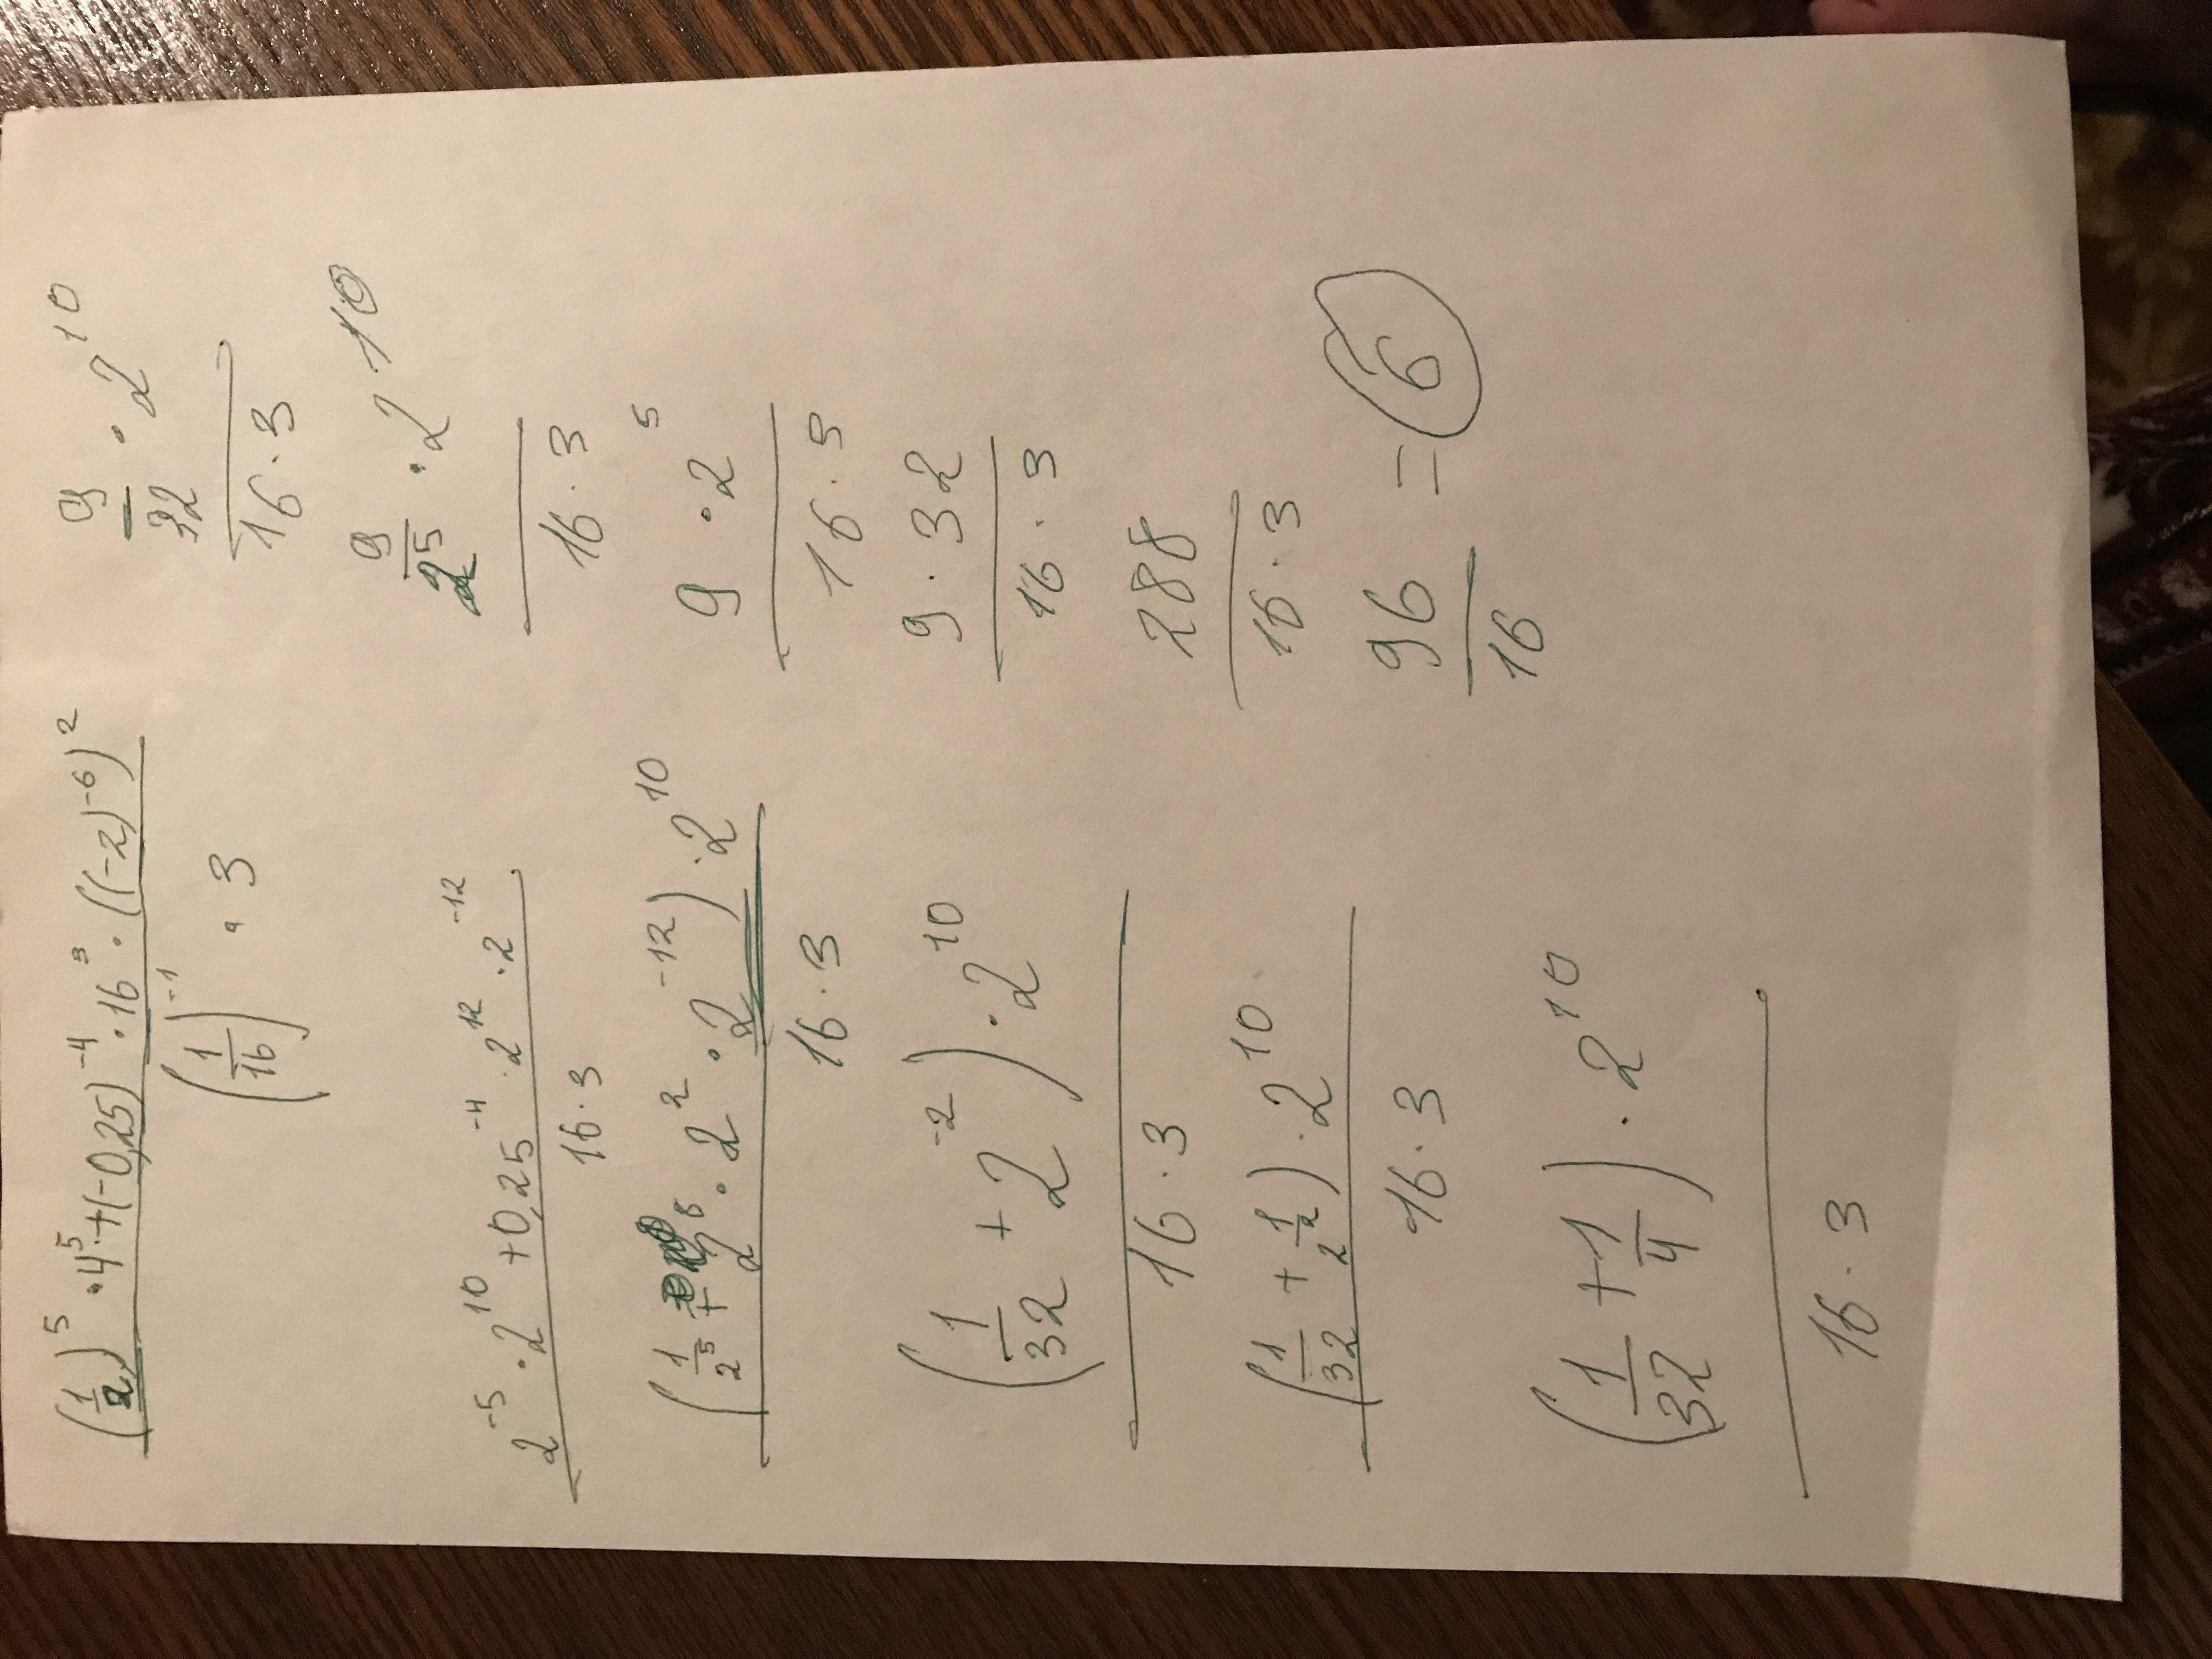 (1/2)^5 · 4^5 + (-0,25)^-4 · 16^3 · ((-2)^-6)^2
(1/16)^-1 · 3
2^-5 · 2^10 + 0,25^-4 · 2^12 · 2^-12
16 · 3
(1/2^5 + 2^8 · 2^2 · 2^-12) · 2^10
16 · 3
(1/32 + 2^-2) · 2^10
16 · 3
(1/32 + 1/2^2) · 2^10
16 · 3
(1/32 + 1/4) · 2^10
16 · 3
9/32 · 2^10
16 · 3
9/2^5 · 2^10
16 · 3
9 · 2^5
16 · 3
9 · 32
16 · 3
288
16 · 3
96/16 = 6